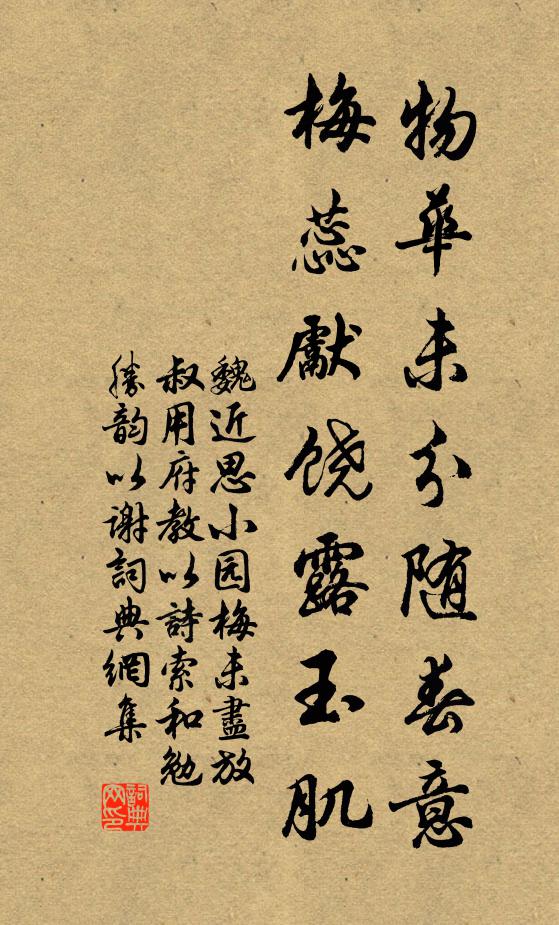 物華未分随春意
梅蕊獻饶露玉肌
魏近思小园梅未盡放
叔用府教以詩索和勉
勝韵以谢詞典網集
詞典網印